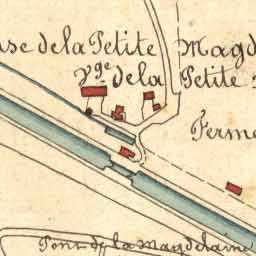 se de la Petite Magd
Vge de la Petite
Ferme
Pont de la Magdelaine